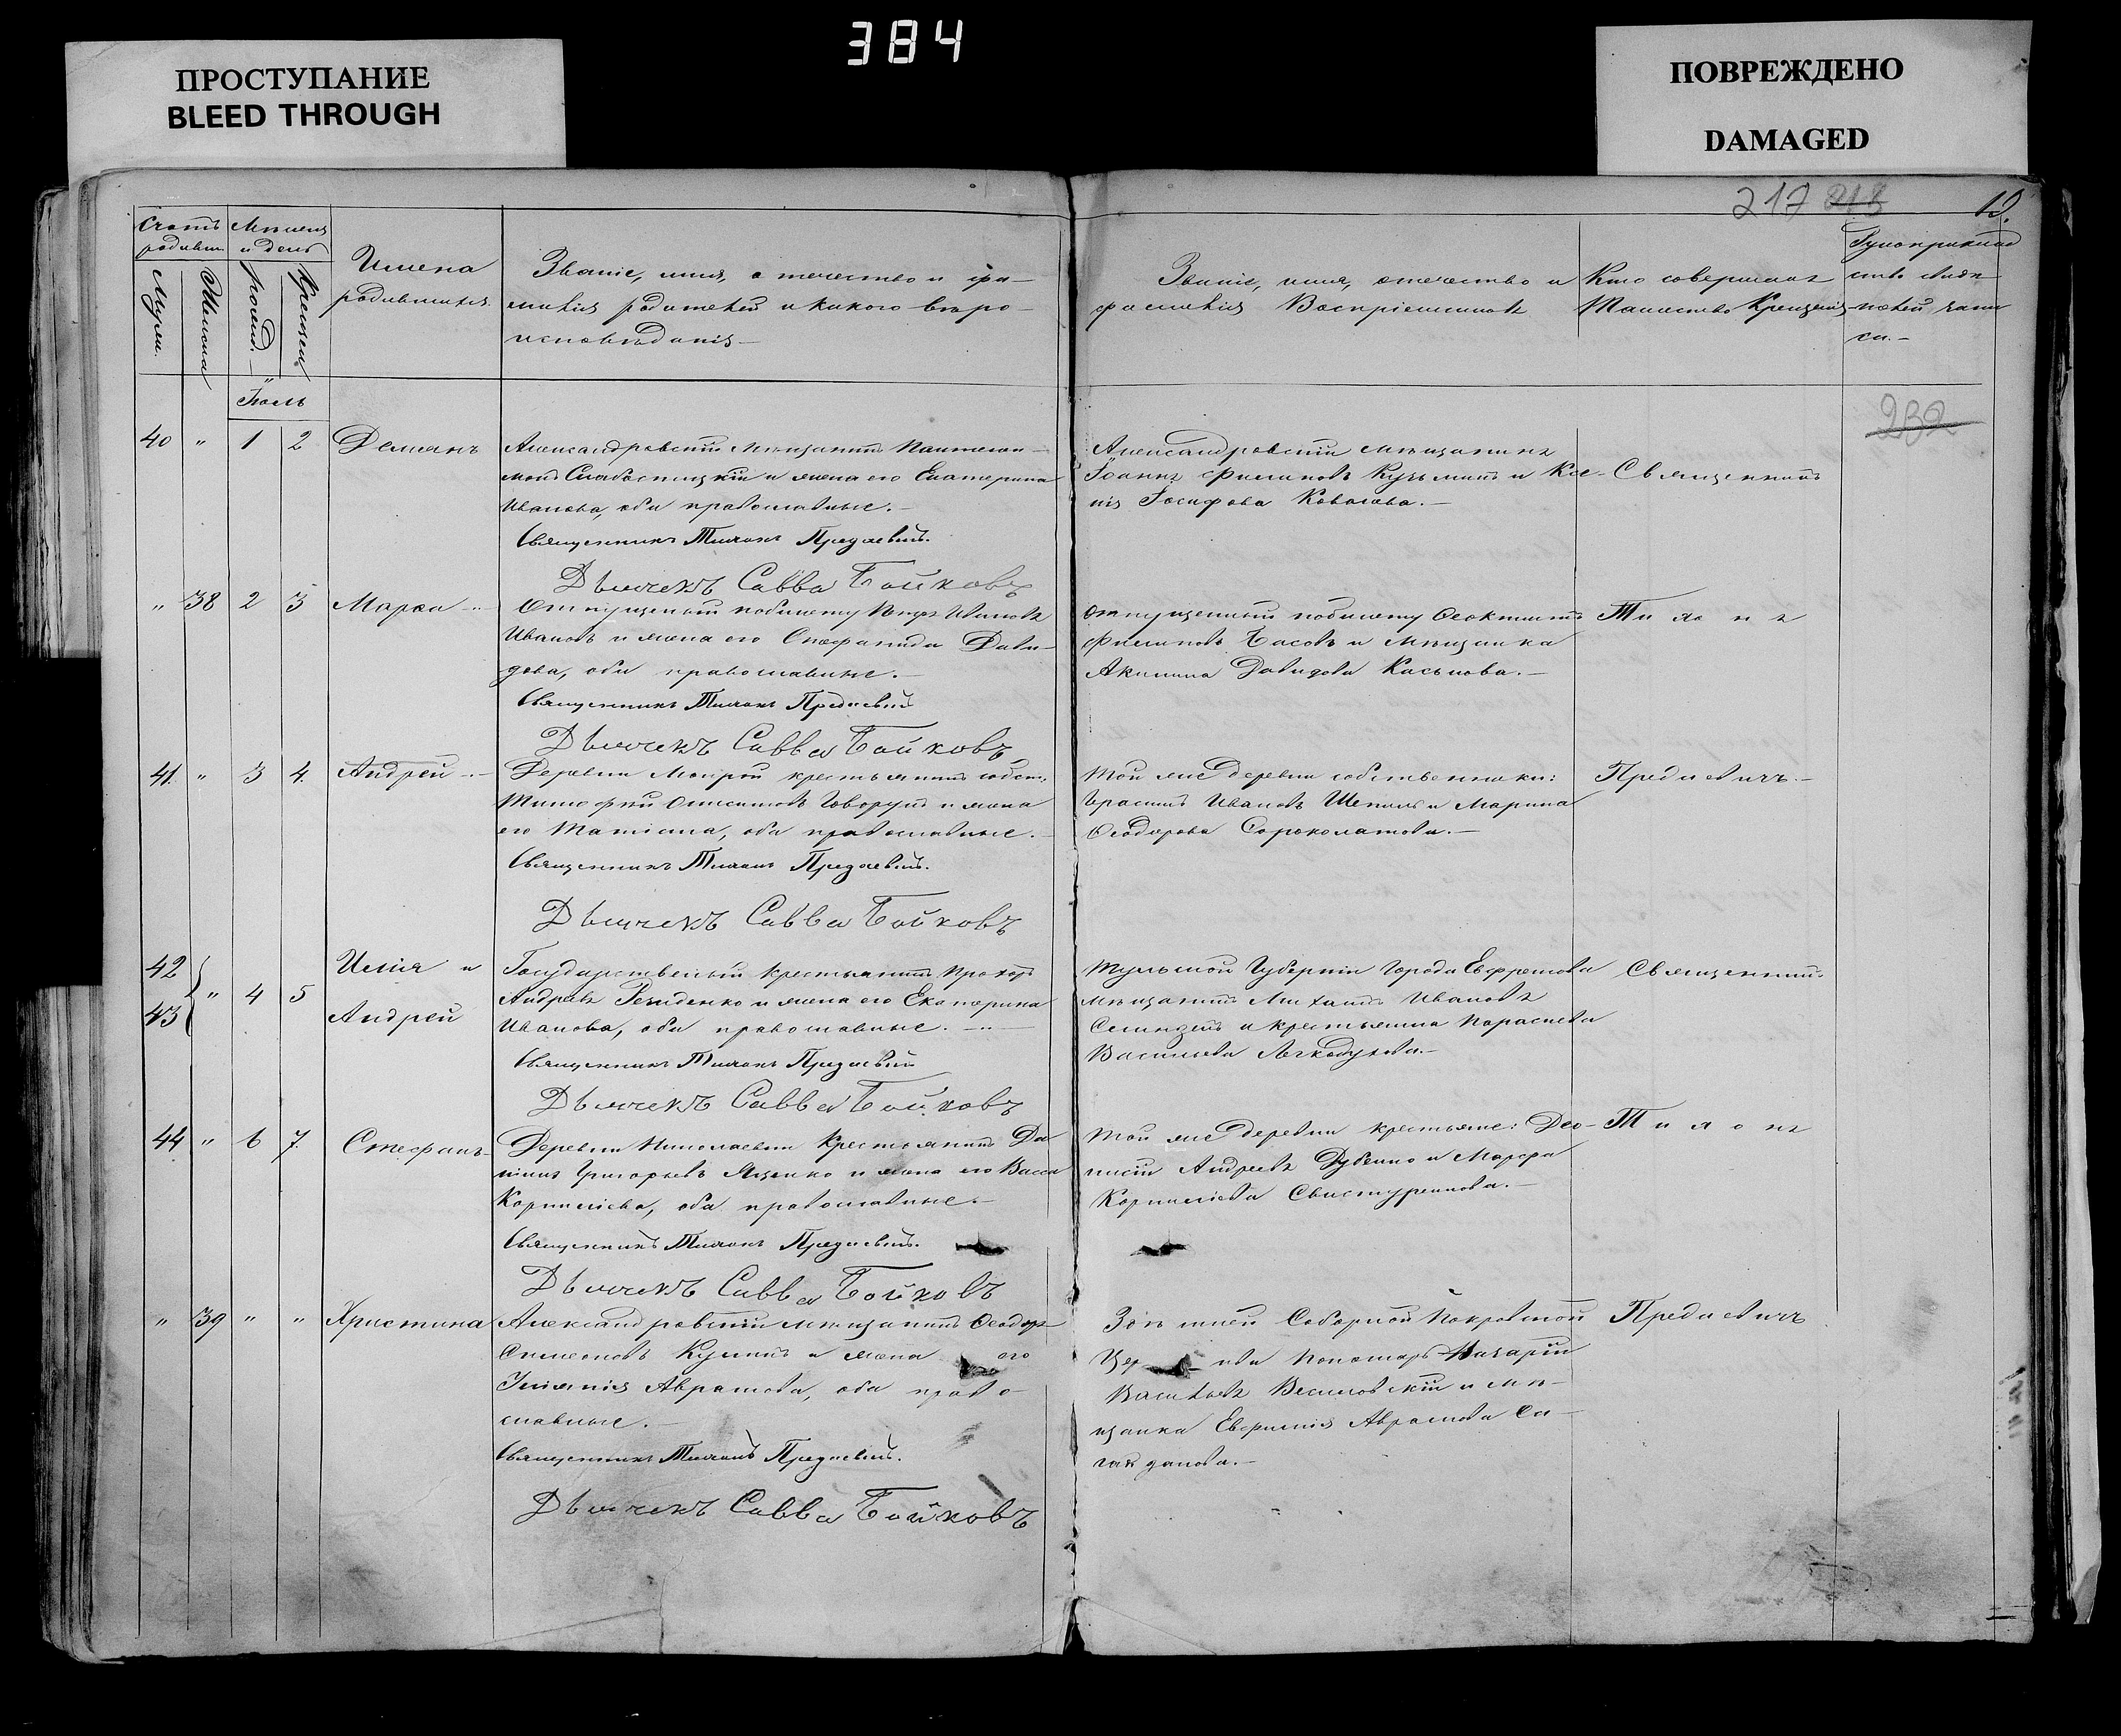 384
ПРОСТУПАНИЕ
BLEED THROUGH
ПОВРЕЖДЕНО
DAMAGED
217 218 19.
Счетъ родивш.
Мѣсяцъ и день
Мужеск.
Женска
рожд.
Крещен.
Имена
родившихся.
Званіе, имя, отчество и фа-
милія родителей и какого вѣро-
исповѣданія —
Званіе, имя, отчество и
фамилія Воспріемниковъ
Кто совершалъ
Таинство Крещенія
Рукоприклад
ство
запи
си. —
Іюль
232
40 " 1 2 Деміанъ
Александровскій мѣщанинъ Пантелей-
монъ и жена его Екатерина
Иванова, оба православные. —
Священникъ Тихонъ Предаевичъ.
Дьячекъ Савва Бойковъ
Александровскій мѣщанинъ
Іоаннъ Филиповъ Кузьминъ и Ксе-
нія Іосифова Ковалева. —
Священникъ
" 38 2 3 Марѳа
Отпущенный по билету Петръ Ивановъ
Ивановъ и жена его Епифанида Дави-
дова, оба православные. —
Священникъ Тихонъ Предаевичъ
Дьячекъ Савва Бойковъ
Отпущенный по билету Ѳеоктистъ
Филиповъ Басовъ и мѣщанка
Акилина Давидова Касьнова. —
Тихонъ
41. " 3 4. Андрей
Деревни Мокрой крестьянинъ собст.
Тимофей Говорунъ и жена
его Татіана, оба православные. —
Священникъ Тихонъ Предаевичъ.
Дьячекъ Савва Бойковъ
Той же деревни собственники:
Герасимъ Ивановъ Шепиль и Марина
Ѳеодорова Сороколатова. —
Предаевичъ. —
42
43 " 4 5 Илія и
Андрей
Государственный крестьянинъ Прохоръ
Андреевъ Резиденко и жена его Екатерина
Иванова, оба православные. —
Священникъ Тихонъ Предаевичъ
Дьячекъ Савва Бойковъ
Тульской Губерніи города Ефремова
мѣщанинъ Михаилъ Ивановъ
и крестьянка Параскева
Васильева Легкодухова. —
Священникъ
44 " 6 7. Стефанъ
Деревни Николаевки Крестьянинъ Да-
ніилъ Григорьевъ Яценко и жена его Васса
Корниліева, оба православные. —
Священникъ Тихонъ Предаевичъ.
Дьячекъ Савва Бойковъ
Той же деревни крестьяне: Део-
нисій Андреевъ Дубенко и Марфа
Корниліева Свистуренкова. —
Тихонъ
" 39 " " Христина
Александровскій мѣщанинъ Ѳеодоръ
Симеоновъ и жена его
Іуліанія Аврамова, оба право-
славные. —
Священникъ Тихонъ Предаевичъ.
Дьячекъ Савва Бойковъ
Здѣшней Соборной Покровской
Церкви Пономарь Назарій
Васильевъ Веселовскій и мѣ-
щанка Евфимія Аврамова Са-
гайдакова. —
Предаевичъ